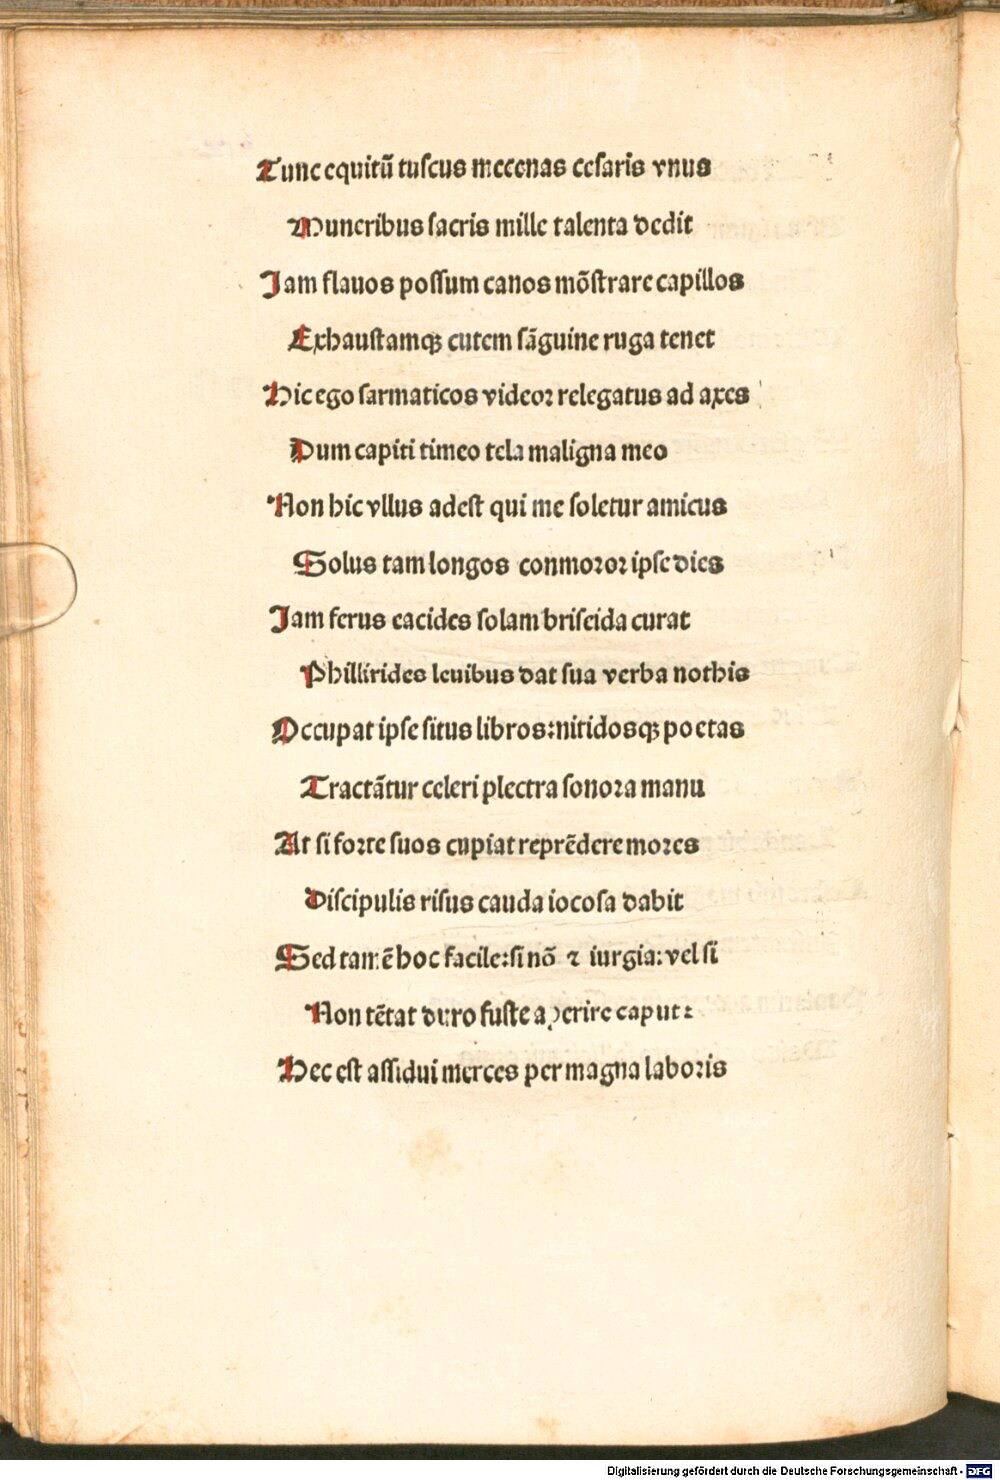 Tunc equitū tuſcus mecenas ceſaris vnus
Muneribus ſacris mille talenta dedit
Jam flauos poſſum canos mōſtrare capillos
Exhauſtamqꝫ cutem ſāguine ruga tenet
Hic ego ſarmaticos videoꝛ relegatus ad axes
Dum capiti timeo tela maligna meo
Non hic vllus adeſt qui me ſoletur amicus
Solus tam longos conmoꝛoꝛ ipſe dies
Jam ferus eacides ſolam briſeida curat
Phillirides leuibus dat ſua verba nothis
Occupat ipſe ſitus libros:nitidosqꝫ poetas
Tractātur celeri plectra ſonoꝛa manu
At ſi foꝛte ſuos cupiat reprēdere moꝛes
Diſcipulis riſus cauda iocoſa dabit
Sed tamē hoc facile:ſi nō ⁊ iurgia: vel ſi
Non tētat duro fuſte aperire caput:
Hec eſt aſſidui merces per magna laboꝛis
Digitalisierung gefördert durch die Deutsche Forschungsgemeinschaft - DFG